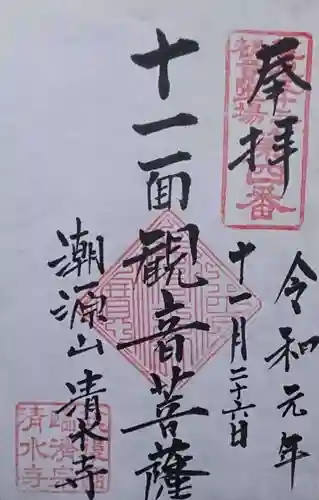 奉拝
令和元年
十一月二十六日
十一面観音菩薩
潮源山 清水寺
四番
臨済宗
清水寺